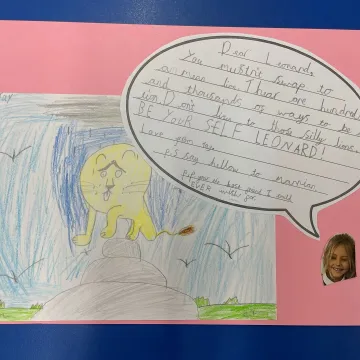 Dear Leonard,
You mustn't swap to
an mean lion Thear are hundreds
and thousands of ways to be a
lion Don't lisen to those silly lions
BE YOUR SELF LEONARD!
Love from
P.S say hellow to marrian
EVER